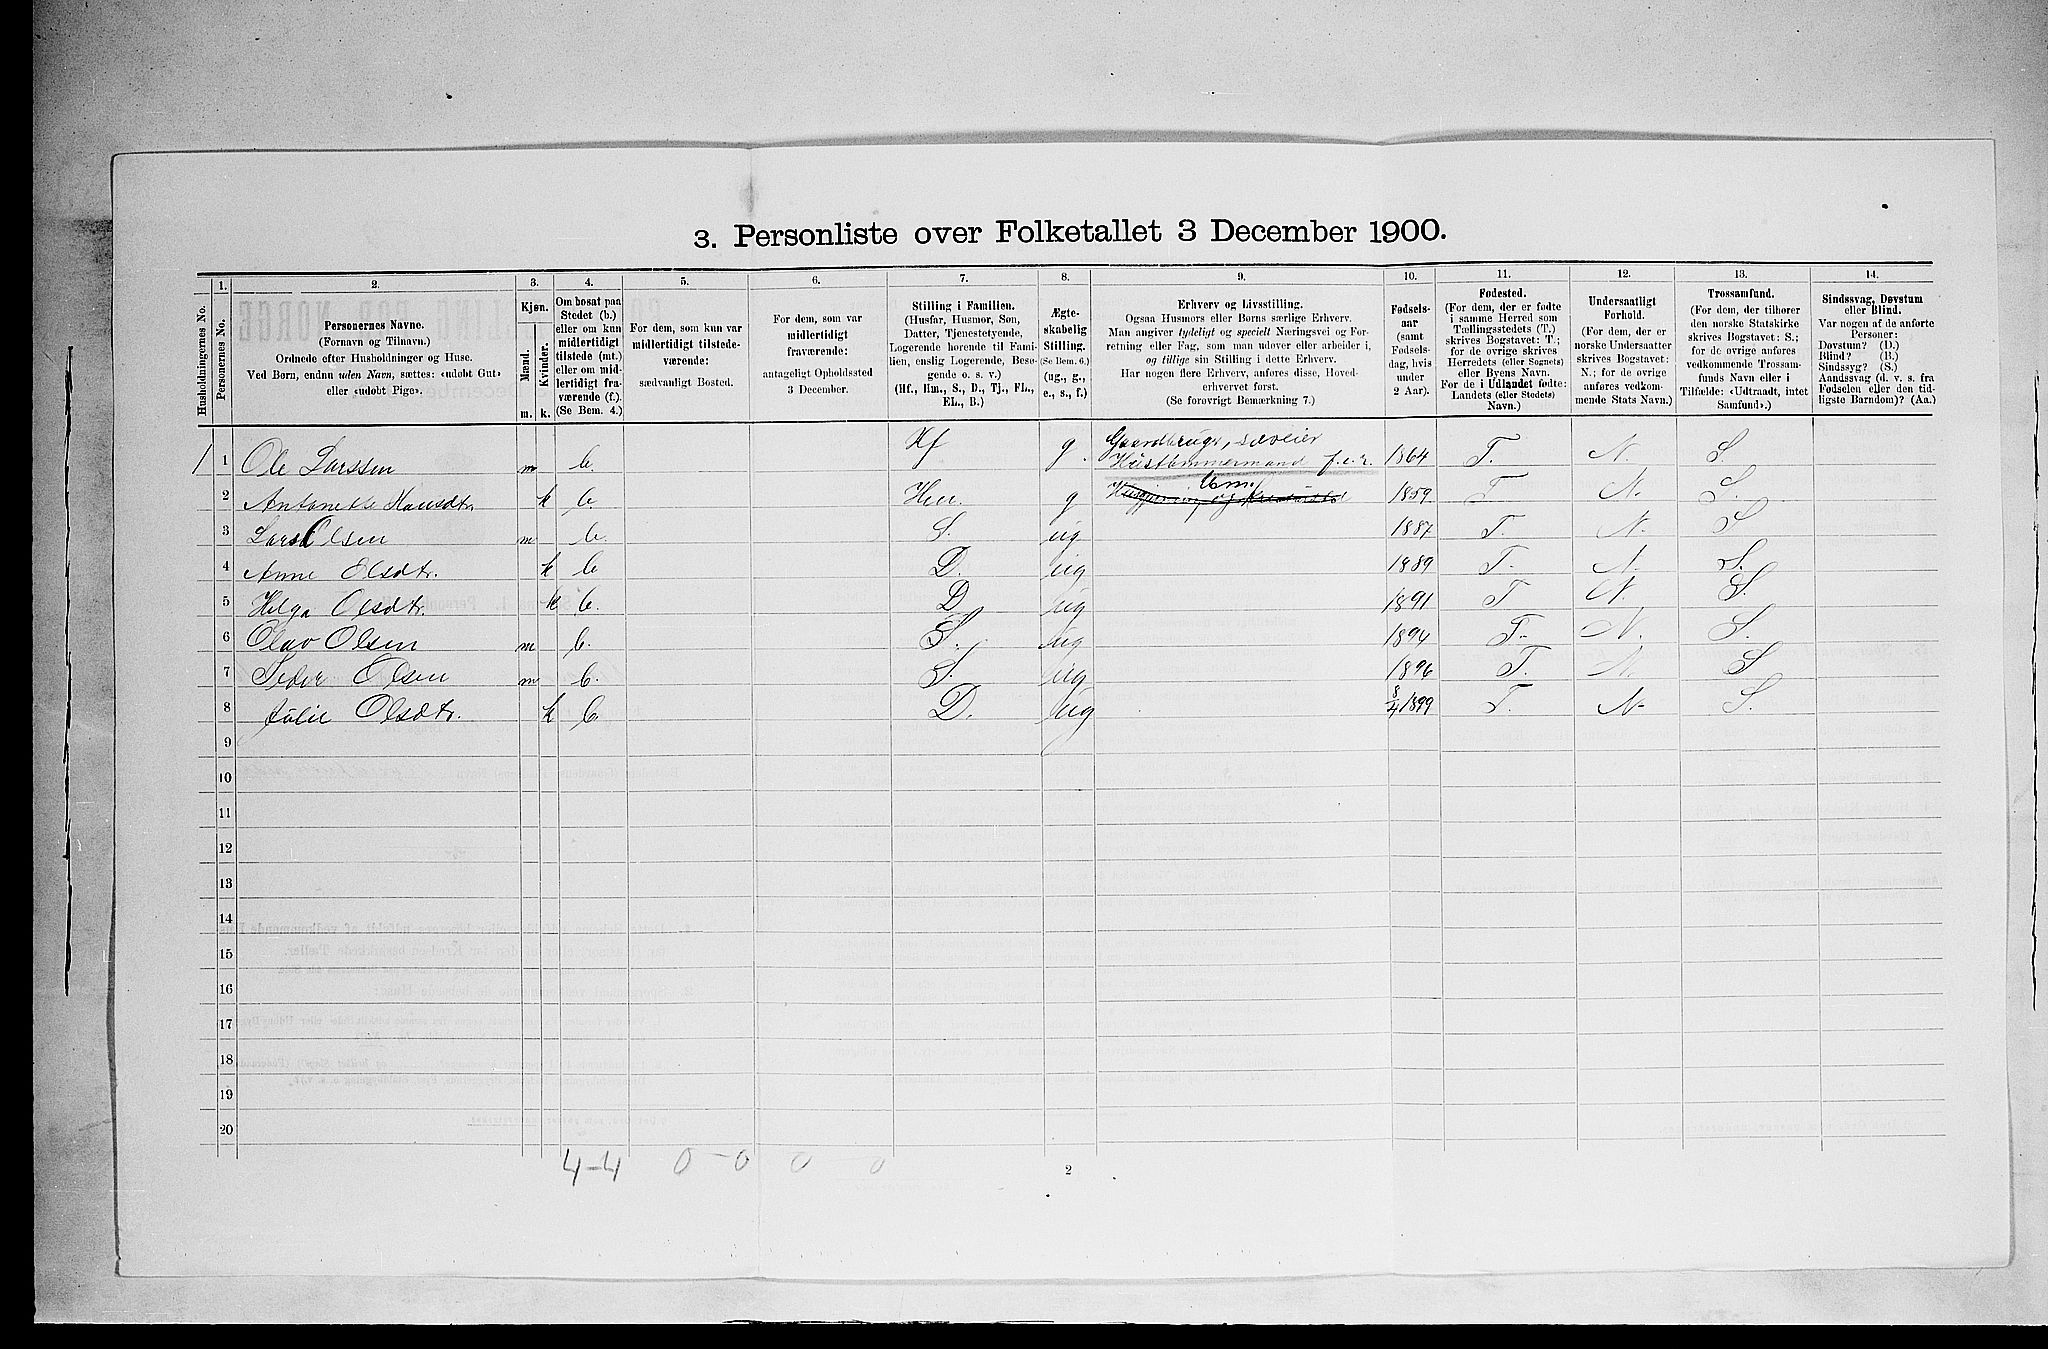 3. Personliste over Folketallet 3 December 1900.
Husholdningernes No.
1. Personernes No.
2. Personernes Navne.
(Fornavn og Tilnavn.)
Ordnede efter Husholdninger og Huse.
Ved Børn, endnu uden Navn, sættes: «udobt Gut»
eller «udobt Pige».
3. Kjøn.
Mænd. m.
Kvinder. k.
4. Om bosat paa
Stedet (b.)
eller om kun
midlertidigt
tilstede (mt.)
eller om mid-
lertidigt fra-
værende (f.).
(Se Bem. 4.)
5. For dem, som kun var
midlertidigt tilstede-
værende:
sædvanligt Bosted.
6. For dem, som var
midlertidigt
fraværende:
antageligt Opholdssted
3 December.
7. Stilling i Familien.
(Husfar, Husmor, Søn,
Datter, Tjenestetyende,
Logerende hørende til Fami-
lien, enslig Logerende, Besø-
gende o. s. v.)
(Hf., Hm., S., D., Tj., FL.,
EL., B.)
8. Ægte-
skabelig
Stilling.
(Se Bem. 6.)
(ug., g.,
e., s., f.)
9. Erhverv og Livsstilling.
Ogsaa Husmors eller Børns særlige Erhverv.
Man angiver tydeligt og specielt Næringsvei og For-
retning eller Fag, som man udøver eller arbeider i,
og tillige sin Stilling i dette Erhverv.
Har nogen flere Erhverv, anføres disse, Hoved-
erhvervet først.
(Se forøvrigt Bemærkning 7.)
10. Fødsels-
aar
(samt
Fødsels-
dag, hvis
under
2 Aar).
11. Fødested.
(For dem, der er fødte
i samme Herred som
Tællingsstedets (T.)
skrives Bogstavet: T.;
for de øvrige skrives
Herredets (eller Sognets)
eller Byens Navn.
For de i Udlandet fødte:
Landets (eller Stedets)
Navn.)
12. Undersaatligt
Forhold.
(For dem, der er
norske Undersaatter
skrives Bogstavet:
N.; for de øvrige
anføres vedkom-
mende Stats Navn.)
13. Trossamfund.
(For dem, der tilhører
den norske Statskirke
skrives Bogstavet: S.;
for de øvrige anføres
vedkommende Trossam-
funds Navn eller i
Tilfælde: «Udtraadt, intet
Samfund».)
14. Sindssvag, Døvstum
eller Blind.
Var nogen af de anførte
Personer:
Døvstum? (D.)
Blind? (B.)
Sindssyg? (S.)
Aandssvag (d. v. s. fra
Fødselen eller den tid-
ligste Barndom)? (Aa.)
Gaardbruger, selveier
1 1 Ole Larssen m b. Hf g. Hustømmermand f.e.r. 1864 T. N. S
2 Antonette Hansdtr. k b. Hm. g 1859 T N. S.
3 Lars Olsen m b. S. ug 1887 T. N. S
4 Anne Olsdtr. k b D. ug 1889 T. N. S.
5 Helga Olsdtr. k b. D ug 1891 T N. S.
6 Olav Olsen m b. S. ug 1894 T. N. S.
7 Peder Olsen m b. S. ug 1896 T. N. S
8 Julie Olsdtr. k b. D. ug 8/4 1899 T. N. S.
9
10
11
12
13
14
15
16
17
18
19
20
4-4 0-0 0-0
2